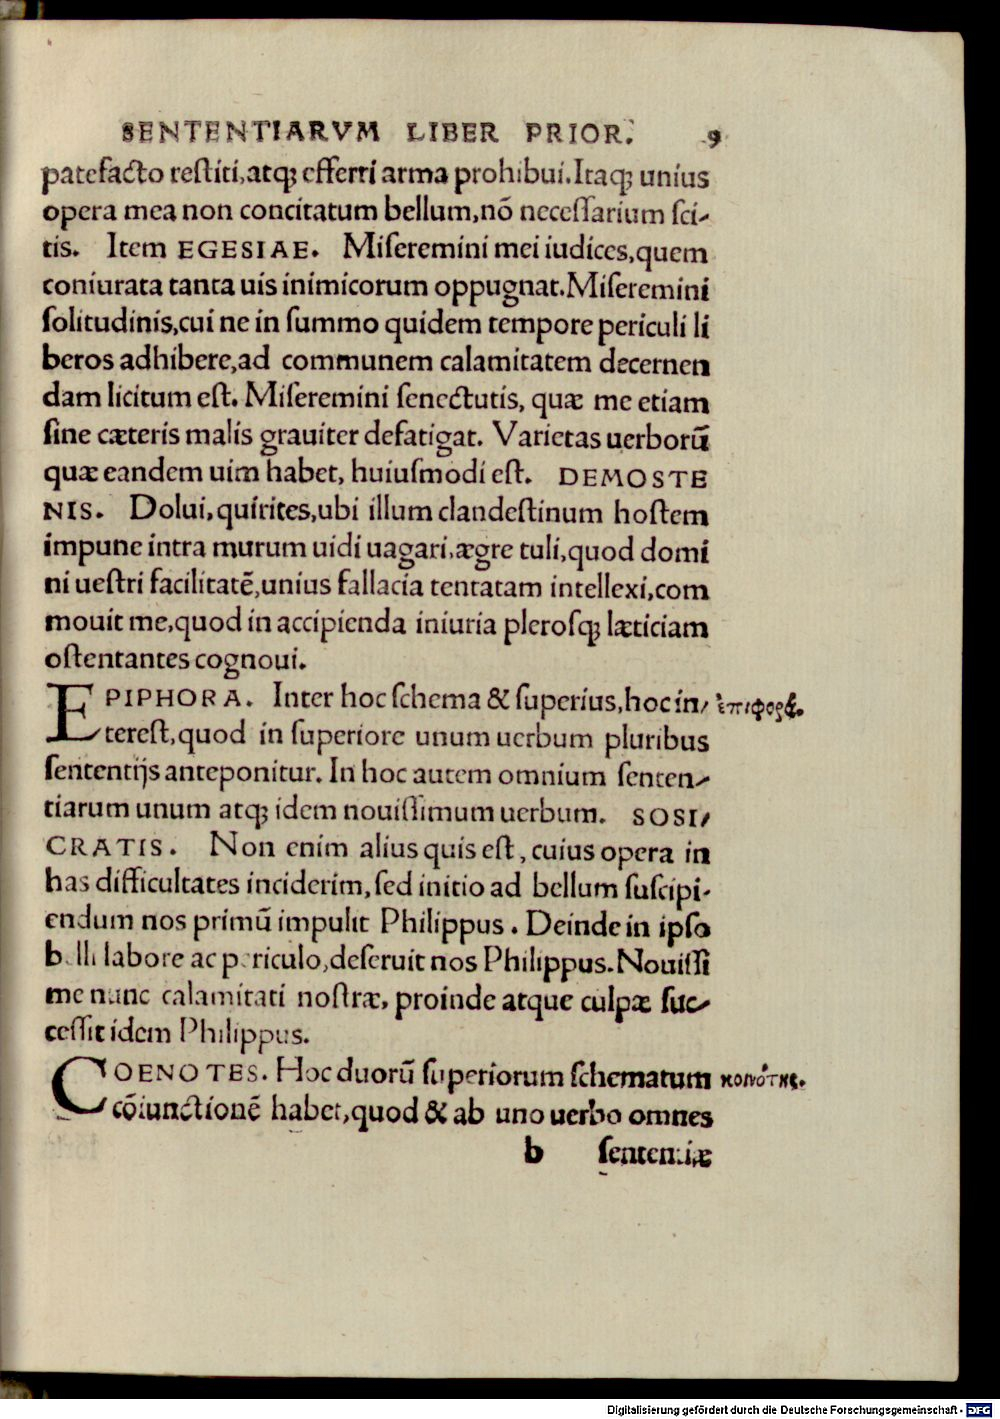 SENTENTIARVM LIBER PRIOR. 9
patefacto restiti,atq; efferri arma prohibui.Itaq; unius
opera mea non concitatum bellum,nō necessarium sci-
tis. Item EGESIAE. Miseremini mei iudices,quem
coniurata tanta uis inimicorum oppugnat.Miseremini
solitudinis,cui ne in summo quidem tempore periculi li
beros adhibere,ad communem calamitatem decernen
dam licitum est. Miseremini senectutis, quæ me etiam
sine cæteris malis grauiter defatigat. Varietas uerborū
quæ eandem uim habet, huiusmodi est. DEMOSTE
NIS. Dolui,quirites,ubi illum clandestinum hostem
impune intra murum uidi uagari,ægre tuli,quod domi
ni uestri facilitatē,unius fallacia tentatam intellexi,com
mouit me,quod in accipienda iniuria plerosq; læticiam
ostentantes cognoui.
EPIPHORA. Inter hoc schema & superius,hoc in/ ἐπιφορά.
terest,quod in superiore unum uerbum pluribus
sententijs anteponitur. In hoc autem omnium senten-
tiarum unum atq; idem nouissimum uerbum. SOSI/
CRATIS. Non enim alius quis est, cuius opera in
has difficultates inciderim, sed initio ad bellum suscipi-
endum nos primū impulit Philippus. Deinde in ipso
belli labore ac periculo,deseruit nos Philippus.Nouissi
me nunc calamitati nostræ, proinde atque culpæ suc-
cessit idem Philippus.
COENOTES. Hoc duorū superiorum schematum κοινότης.
cōiunctionē habet,quod & ab uno uerbo omnes
b sententiæ
Digitalisierung gefördert durch die Deutsche Forschungsgemeinschaft - DFG